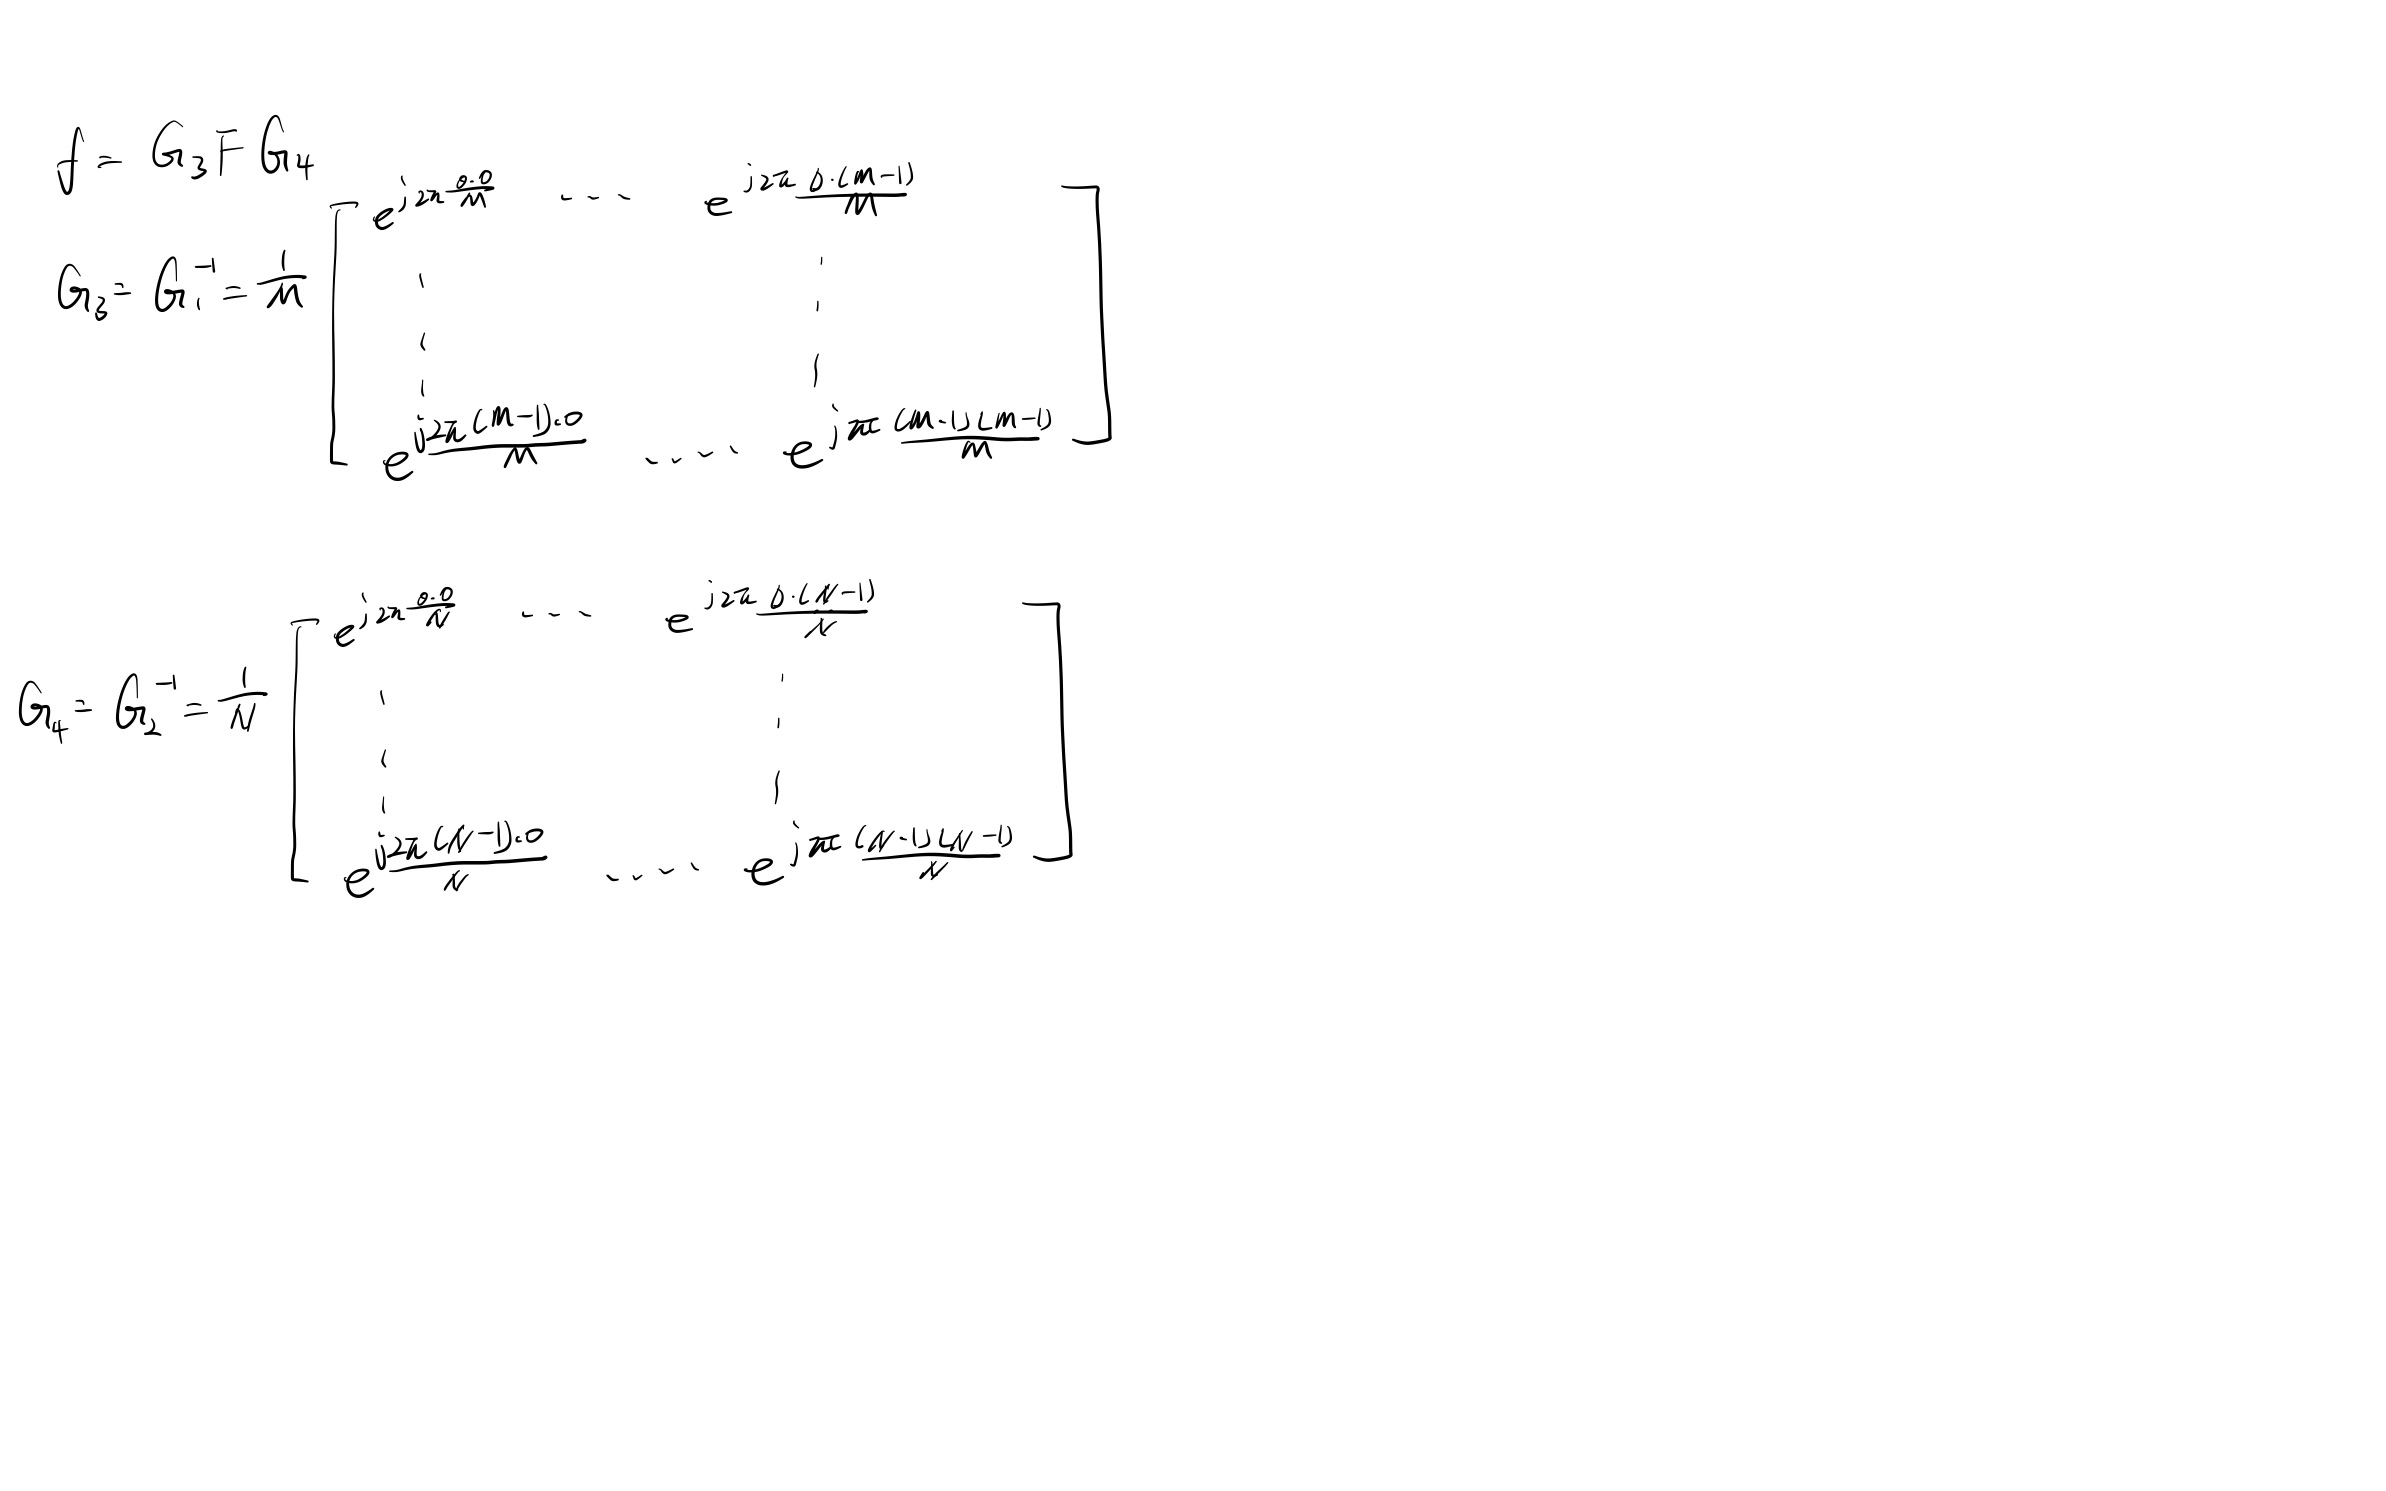 f = G₃ F G₄
G₃ = G₁⁻¹ = 1/M [ e^{j2π 0·0/M} ... e^{j2π 0·(M-1)/M}
e^{j2π (M-1)·0/M} .... e^{jπ (M-1)(M-1)/M} ]
G₄ = G₂⁻¹ = 1/N [ e^{j2π 0·0/N} ... e^{j2π 0·(N-1)/N}
e^{j2π (N-1)·0/N} .... e^{jπ (N-1)(N-1)/N} ]